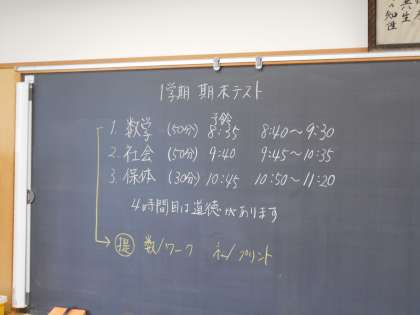 1学期 期末テスト
予鈴
1. 数学 (50分) 8:35 8:40〜9:30
2. 社会 (50分) 9:40 9:45〜10:35
3. 保体 (30分) 10:45 10:50〜11:20
4時間目は道徳があります
提 数/ワーク プリント